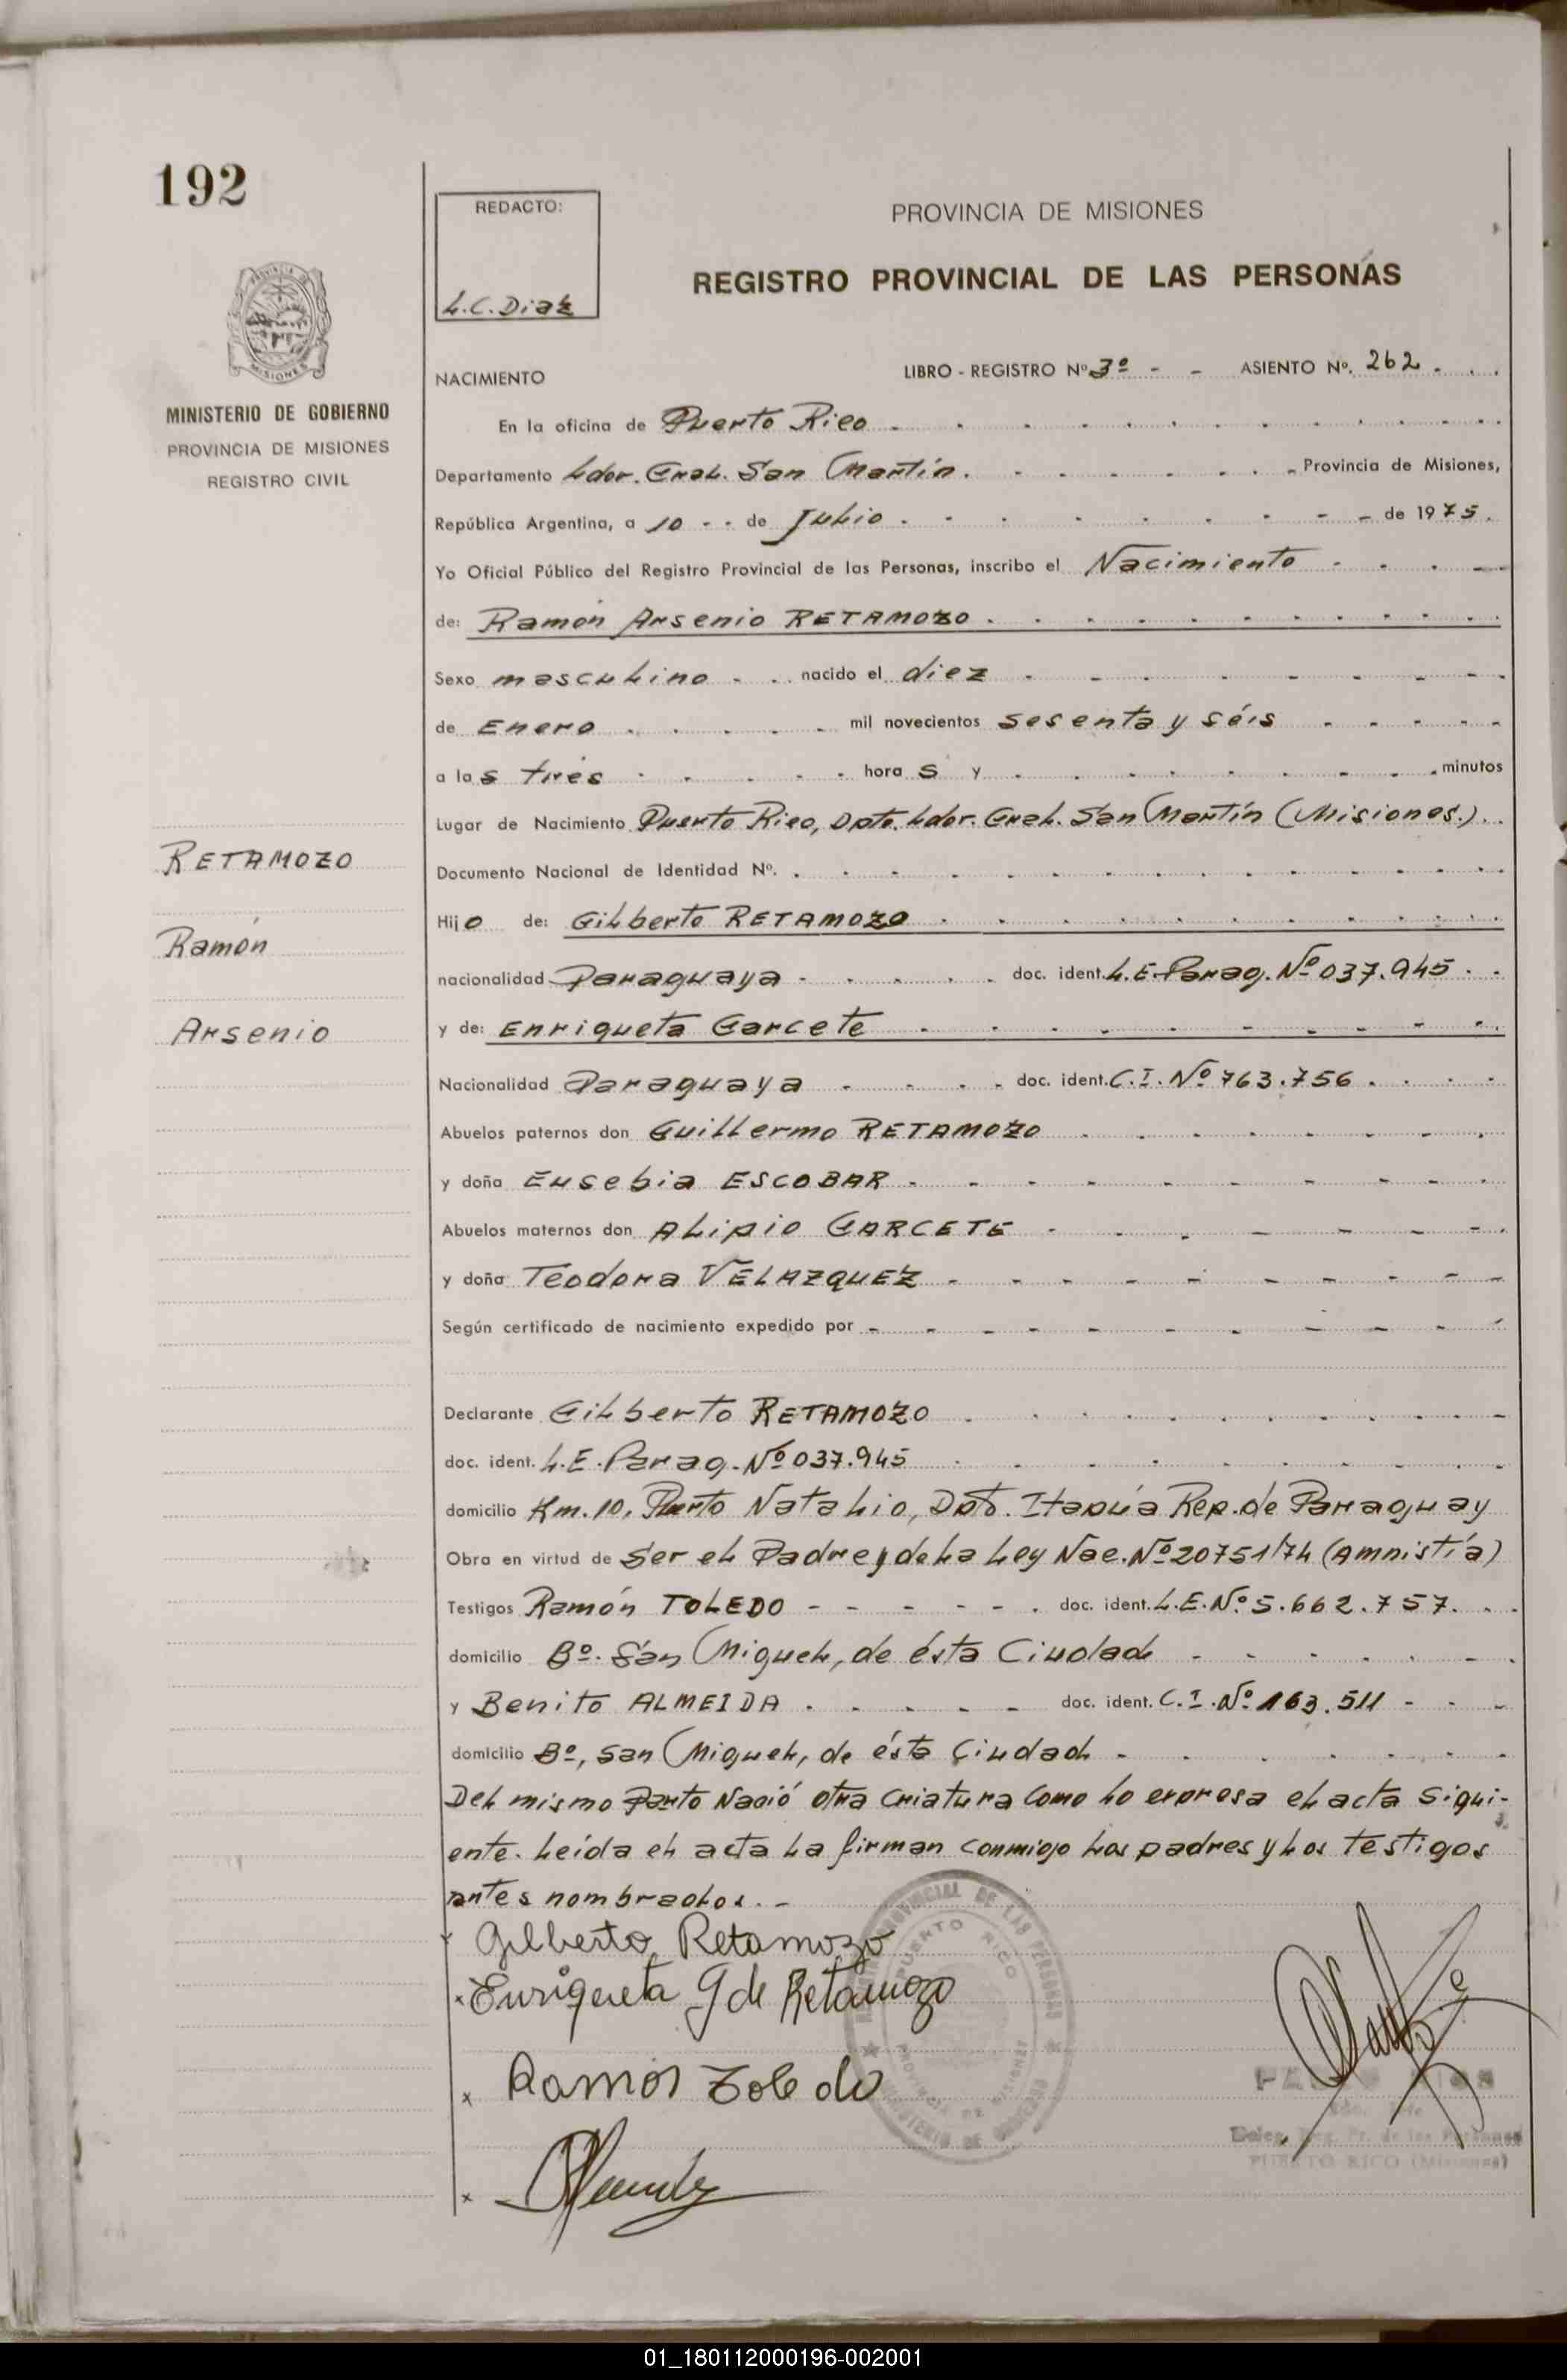 192
REDACTO:
L.C. Diaz
PROVINCIA DE MISIONES
REGISTRO PROVINCIAL DE LAS PERSONAS
MISIONES
MINISTERIO DE GOBIERNO
PROVINCIA DE MISIONES
REGISTRO CIVIL
NACIMIENTO LIBRO - REGISTRO Nº 3º - - ASIENTO Nº. 262
En la oficina de Puerto Rico
Departamento Ldor. Gral. San Martín. Provincia de Misiones,
República Argentina, a 10 - - de Julio de 1975.
Yo Oficial Público del Registro Provincial de las Personas, inscribo el Nacimiento
de: Ramón Arsenio RETAMOZO
Sexo masculino nacido el diez
de Enero mil novecientos sesenta y séis
a las tres horas y minutos
Lugar de Nacimiento Puerto Rico, Dpto. Ldor. Gral. San Martín (Misiones.)
Documento Nacional de Identidad Nº.
Hijo de: Gilberto RETAMOZO
nacionalidad Paraguaya doc. ident. L.E. Parag. Nº 037.945
y de: Enriqueta Garcete
Nacionalidad Paraguaya doc. ident. C.I. Nº 763.756
Abuelos paternos don Guillermo RETAMOZO
y doña Eusebia ESCOBAR
Abuelos maternos don Alipio GARCETE
y doña Teodora VELAZQUEZ
Según certificado de nacimiento expedido por
Declarante Gilberto RETAMOZO
doc. ident. L.E. Parag. Nº 037.945
domicilio Km. 10, Puerto Natalio, Dpto. Itapúa Rep. de Paraguay
Obra en virtud de Ser el Padre y de la Ley Nac. Nº 20751/74 (Amnistía)
Testigos Ramón TOLEDO doc. ident. L.E. Nº 5.662.757.
domicilio Bº. San Miguel, de ésta Ciudad
y Benito ALMEIDA doc. ident. C.I. Nº 163.511
domicilio Bº, San Miguel, de ésta Ciudad
Del mismo Parto Nació otra criatura como lo expresa el acta sigui-
ente. Leída el acta la firman conmigo los padres y los testigos
antes nombrados. -
RETAMOZO
Ramón
Arsenio
Gilberto Retamozo
Enriqueta G de Retamozo
Ramón Toledo
REGISTRO PROVINCIAL DE LAS PERSONAS
PUERTO RICO
PROVINCIA DE MISIONES
MINISTERIO DE GOBIERNO
Deleg. Reg. Pr. de las Personas
PUERTO RICO (Misiones)
01_180112000196-002001